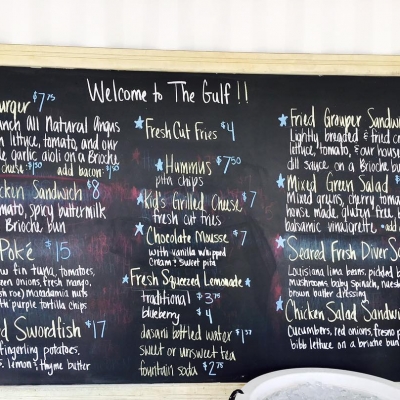 Welcome to The Gulf!!
urger $7.75
anch All Natural Angus
n lettuce, tomato, and our
e garlic aioli on a Brioche
cheese $1.50 add bacon $1.50
cken Sandwich $8
mato, spicy buttermilk
Brioche bun
Poké $15
w fin tuna, tomatoes,
en onions, fresh mango,
sh roe) macadamia nuts
ith purple tortilla chips
d Swordfish $17
fingerling potatoes,
s, lemon & thyme butter
Fresh Cut Fries $4
Hummus $7.50
pita chips
Kid's Grilled Cheese $7
fresh cut fries
Chocolate Mousse $7
with vanilla whipped
cream & sweet pita
Fresh Squeezed Lemonade
traditional $3.75
blueberry $4
dasani bottled water $1.57
sweet or unsweet tea
fountain soda $2.75
Fried Grouper Sandw
Lightly breaded & fried c
lettuce, tomato, & our house
dill sauce on a Brioche bun
Mixed Green Salad
Mixed greens, cherry toma
house made, gluten free, b
balsamic vinaigrette
Seared Fresh Diver S
Louisiana lima beans, pickled b
mushrooms, baby spinach,
brown butter dressing
Chicken Salad Sandw
Cucumbers, red onions, fresno p
bibb lettuce on a brioche bun